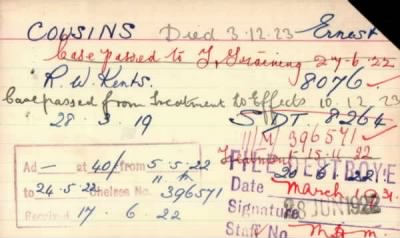 COUSINS Died 3.12.23 Ernest
Case passed to T. Training 27-6-22
R.W. Kents. 8076
Case passed from Treatment to Effects 10.12.23
28.3.19 SDT. 8264
11/M/396571
Treatment 15.11.22
Ad — at 40/- from 5.5.22
to 24.5.22 Chelsea No. 11/M 396571
Received 17.6.22
FILE DESTROYED
20.6.22
Date March 1931
Signature
28 JUN 1922
Staff No